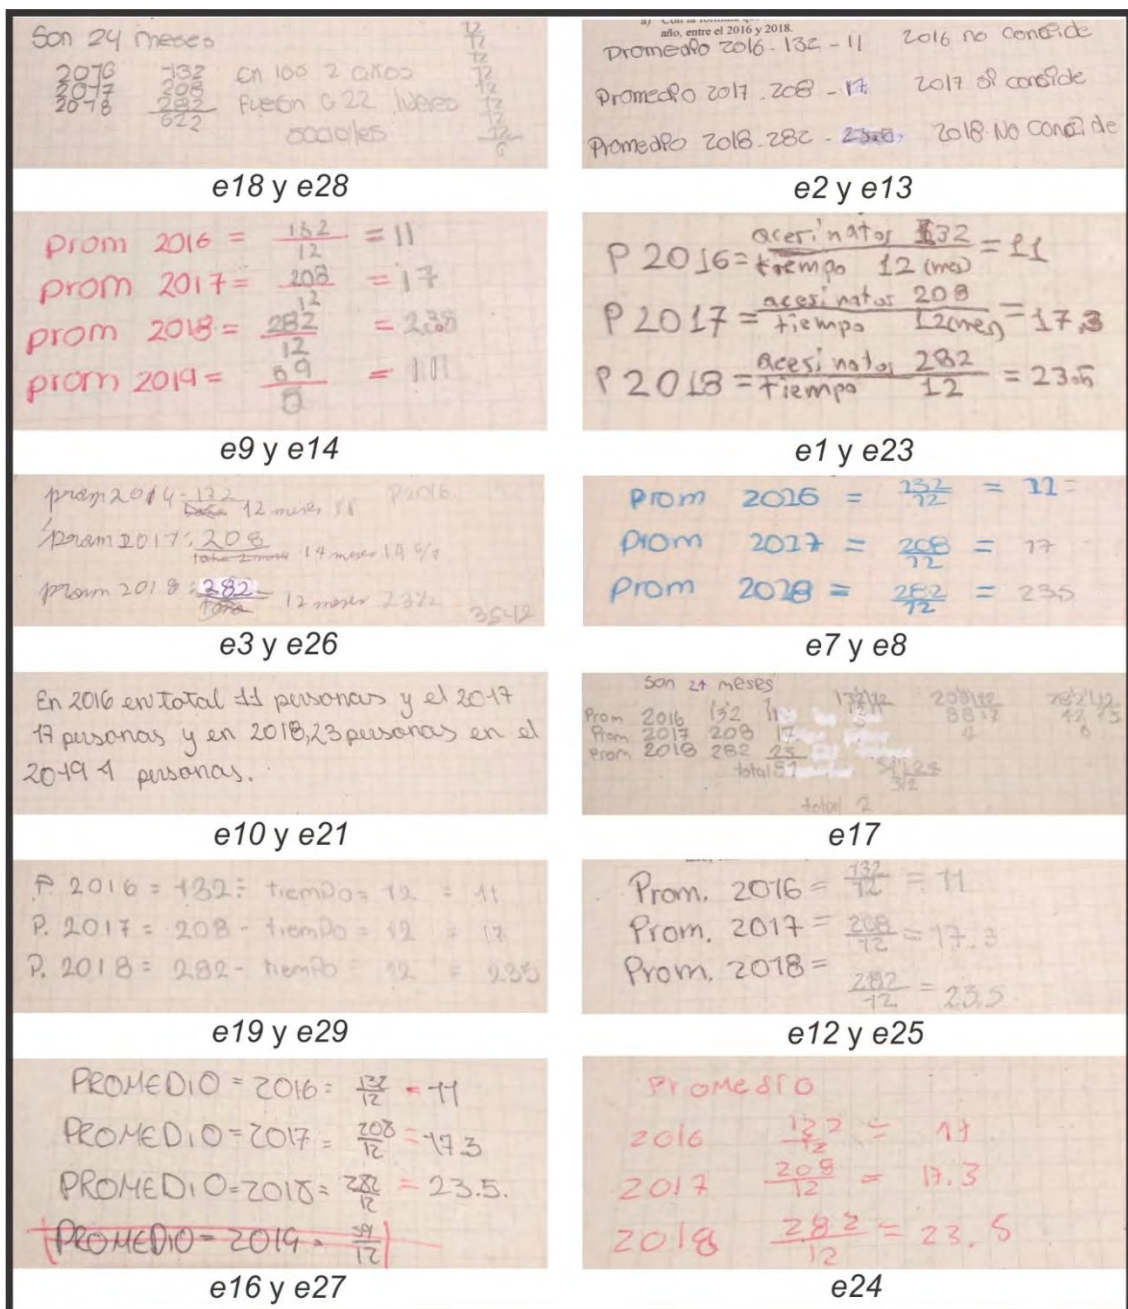 Son 24 meses
2016 132 en los 2 años
2017 208 fueron 622 luderes
2018 282 sociales
622
12
12
12
12
12
12
12
12
6
e18 y e28
año, entre el 2016 y 2018.
Promedio 2016 - 132 - 11 2016 no conoeide
Promedio 2017 - 208 - 17 2017 si conside
Promedio 2018 - 282 - 2018 No Conoide
e2 y e13
prom 2016 = 132/12 = 11
prom 2017 = 208/12 = 17
prom 2018 = 282/12 = 2,35
prom 2019 =
e9 y e14
P 2016 = acesinatos 132 / tiempo 12 (mes) = 11
P 2017 = acesinatos 208 / tiempo 12(mes) = 17,3
P 2018 = acesinatos 282 / tiempo 12 = 23.5
e1 y e23
prom 2014 = 132 12 meses P2016
prom 2017 : 208 14 meses
prom 2018 : 282 12 meses
e3 y e26
prom 2016 = 132/12 = 11 =
prom 2017 = 208/12 = 17
prom 2018 = 282/12 = 235
e7 y e8
En 2016 en total 11 personas y el 2017
17 personas y en 2018, 23 personas en el
2019 4 personas.
e10 y e21
Son 24 meses
Prom 2016 132 11 132|12 208|12 282|12
Prom 2017 208 17 88 17
Prom 2018 282 23
total 51
total 2
e17
P. 2016 = 132 = tiempo = 12 = 11
P. 2017 = 208 - tiempo = 12 = 17
P. 2018 = 282 - tiempo = 12 = 235
e19 y e29
Prom. 2016 = 132/12 = 11
Prom. 2017 = 208/12 = 17.3
Prom. 2018 =
282/12 = 23.5
e12 y e25
PROMEDIO = 2016 = 132/12 = 11
PROMEDIO = 2017 = 208/12 = 17.3
PROMEDIO = 2018 = 282/12 = 23.5.
PROMEDIO = 2019 = 59/12
e16 y e27
Promedio
2016 132/12 = 11
2017 208/12 = 17.3
2018 282/12 = 23.5
e24